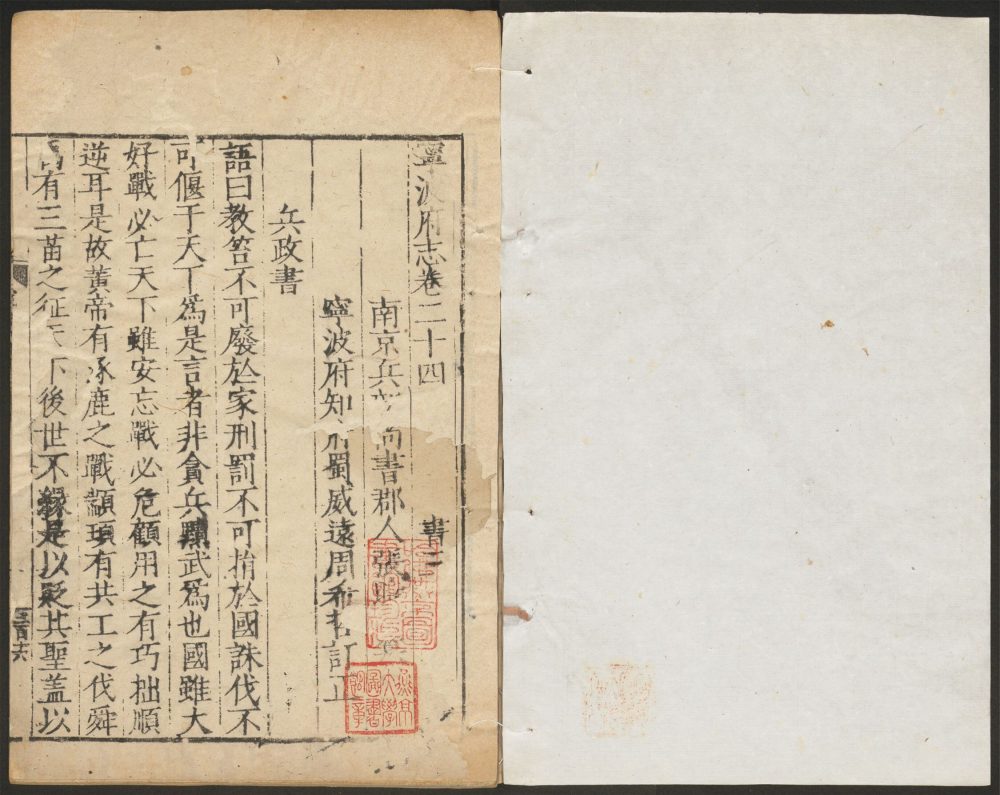 寧波府志卷二十四 書二
南京兵部尚書郡人張
寧波府知府蜀威遠周希 訂正
兵政書
語曰教笞不可廢於家刑罰不可捐於國誅伐不
可偃于天下爲是言者非貪兵黷武爲也國雖大
好戰必亡天下雖安忘戰必危顧用之有巧拙順
逆耳是故黃帝有涿鹿之戰顓頊有共工之伐舜
有三苗之征天下後世不緣是以疑其聖蓋以
燕京大學圖書館章